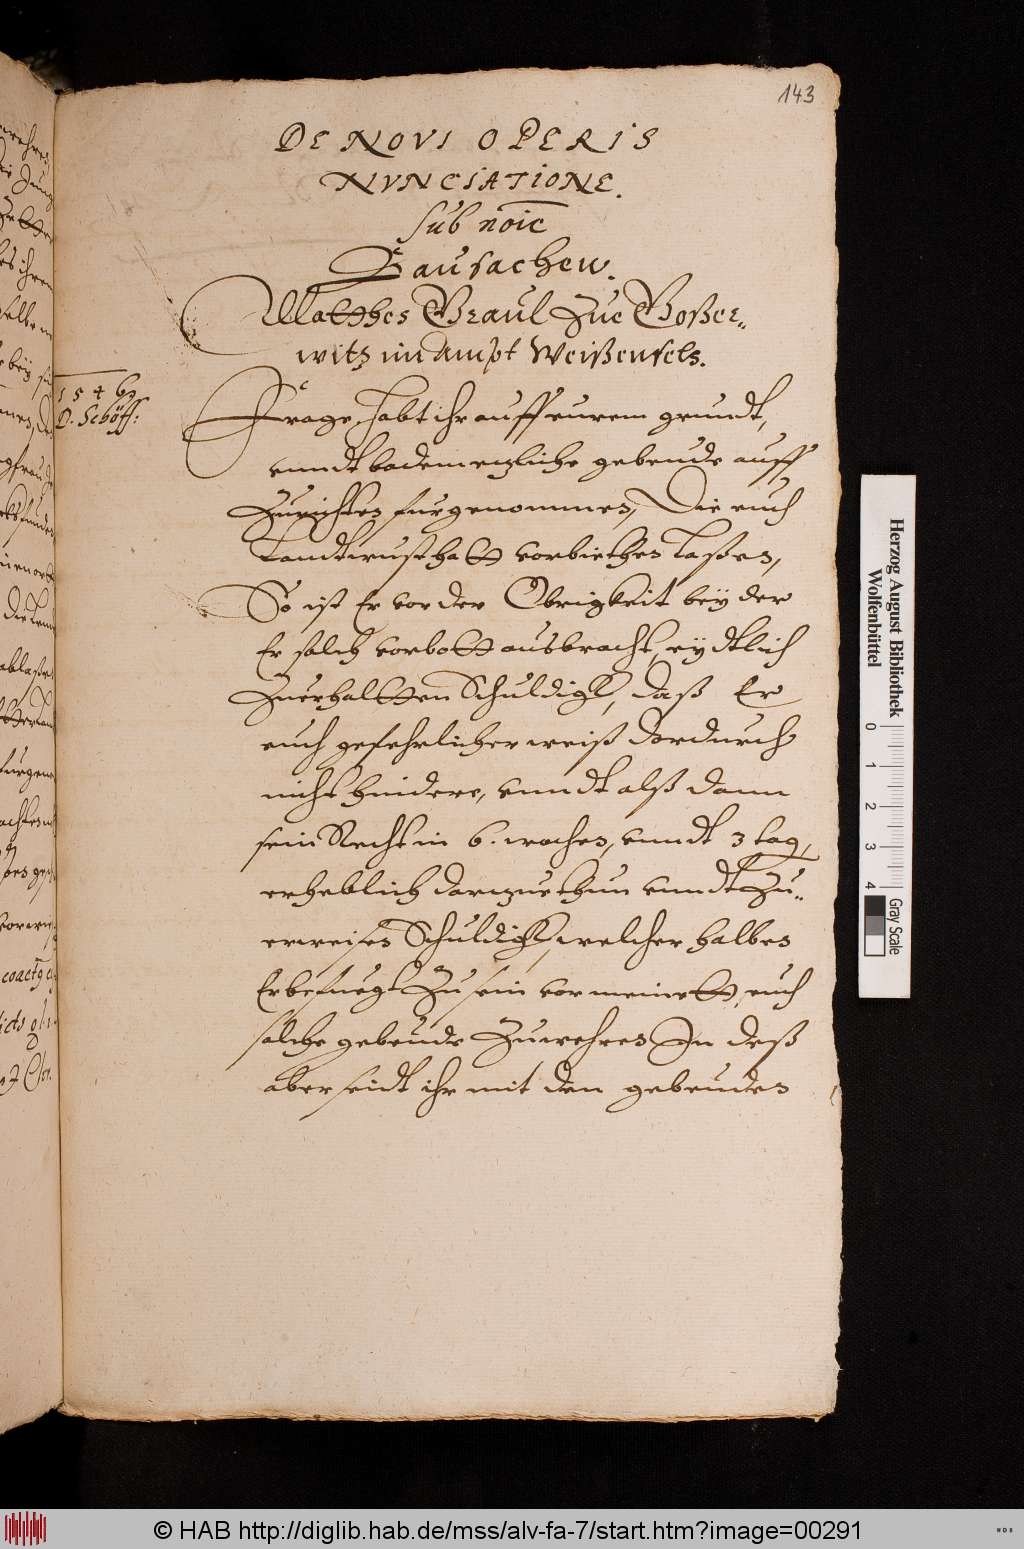 143
DE NOVI OPERIS
NVNCIATIONE.
sub noīe
Bausachen.
Matthes Braul Zue Boßer„
witz im Ampt Weißenfels.
1546
D. Schöff:
Frage, Habt ihr auff eurem grundt,
vnndt bodem etzliche gebeude auff
Zurichten furgenommen, Die euch
vorbiethen laßen,
So ist Er vor der Obrigkeit bey der
Er solch vorbott ausbracht, eydtlich
Zuerhaltten Schuldigk, daß Er
euch gefehrlicher weiß dordurch
nicht hindere, vnndt alß dann
sein Recht in 6. wochen, vnndt 3 tag,
erheblich darzuethun vnndt Zu„
erweisen Schuldigk, welcher halben
Er befuegt Zu sein vormeinett, euch
solche gebeude Zuwehren, In deß
aber seidt ihr mit den gebeuden
Herzog August Bibliothek
Wolfenbüttel
0 1 2 3 4
Gray Scale
© HAB http://diglib.hab.de/mss/alv-fa-7/start.htm?image=00291